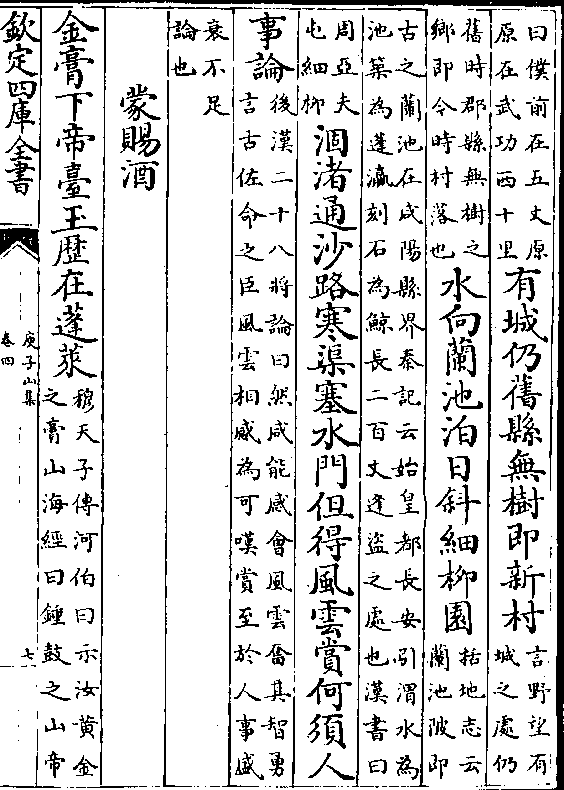 曰僕前在五丈原
原在武功西十里
有城仍舊縣無樹即新村
言野望有
城之處仍
舊時郡縣無樹之
鄉即今時村落也
水向蘭池泊日斜細柳園
括地志云
蘭池陂即
古之蘭池在咸陽縣界秦記云始皇都長安引渭水為
池築為蓬瀛刻石為鯨長二百丈逢盜之處也漢書曰
周亞夫
屯細柳
涸渚通沙路寒渠塞水門但得風雲賞何須人
事論
後漢二十八將論曰然咸能感會風雲奮其智勇
言古佐命之臣風雲相感為可嘆賞至於人事盛
衰不足
論也
蒙賜酒
金膏下帝臺玉歴在蓬萊
穆天子傳河伯曰示汝黃金
之膏山海經曰鍾鼓之山帝
欽定四庫全書
庾子山集
卷四
七